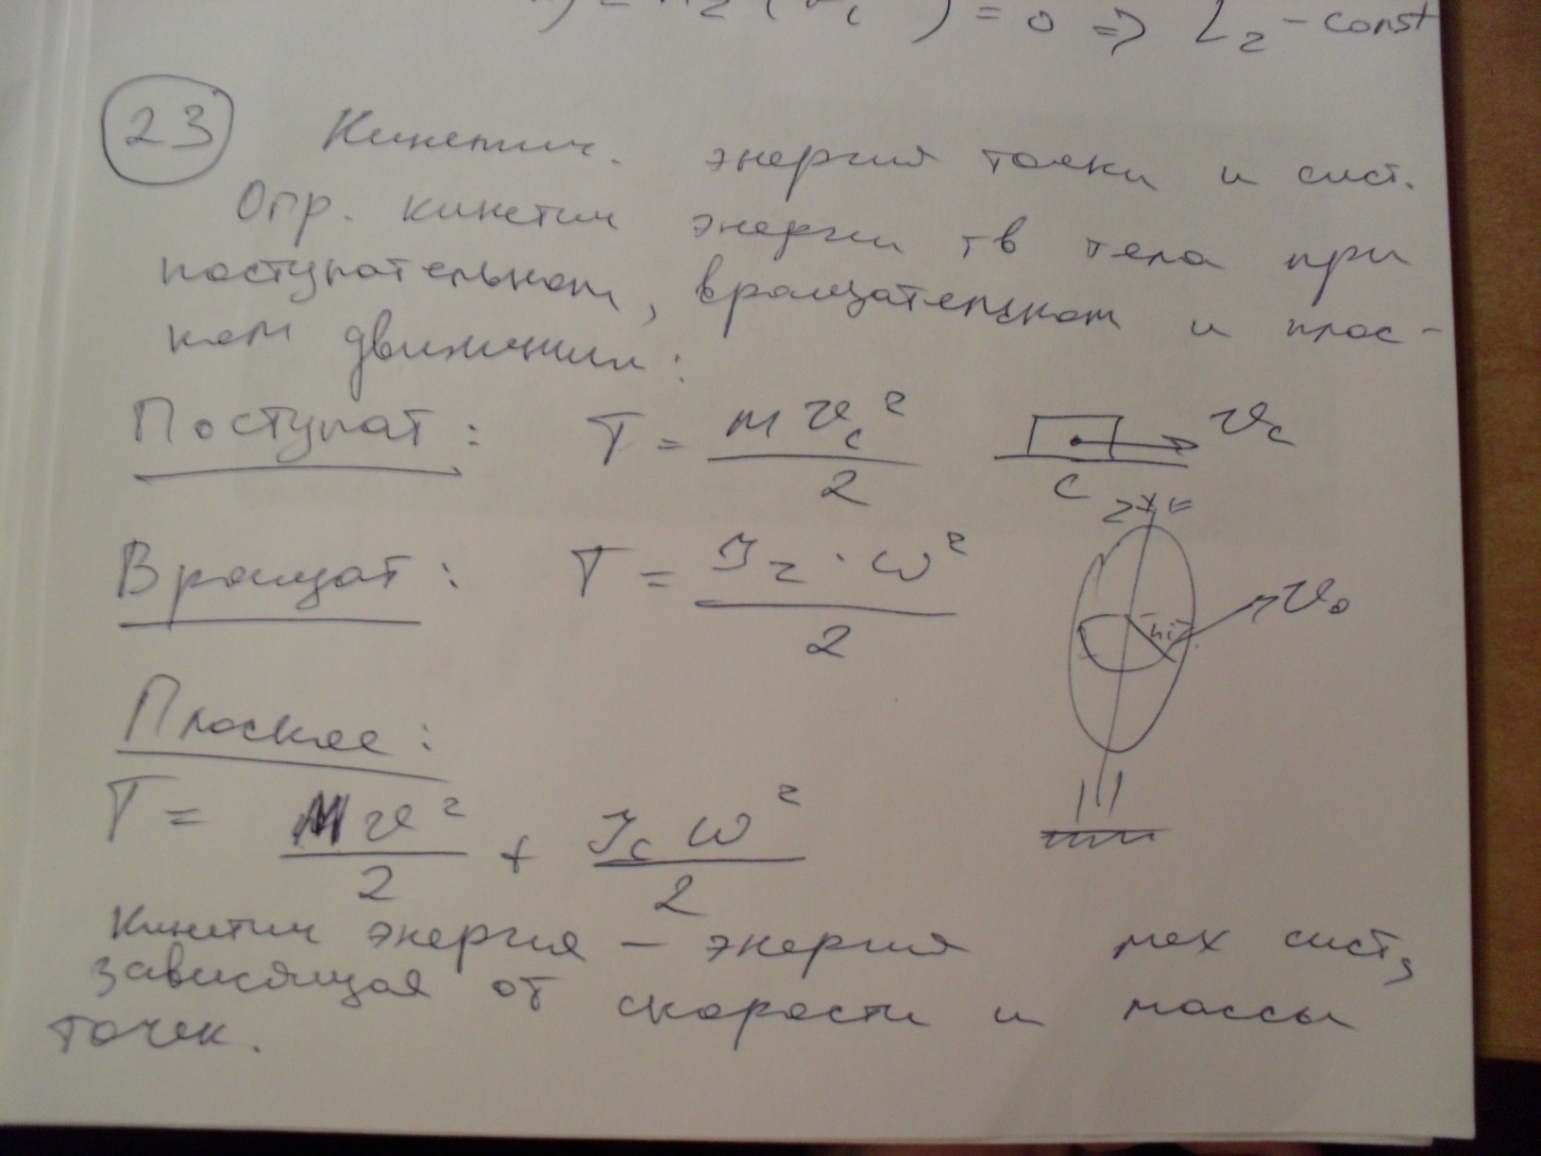 ) = 0 ⇒ L₂ - const
23 Кинетич. энергия точки и сист.
Опр. кинетич энергии тв тела при
поступательном, вращательном и плос-
ком движении:
Поступат: T = mv_c²/2
v_c
C
Вращат: T = J_z · ω²/2
z
h_i
v₀
Плоское:
T = Mv²/2 + J_c ω²/2
Кинетич энергия — энергия мех сист,
зависящая от скорости и массы
точек.